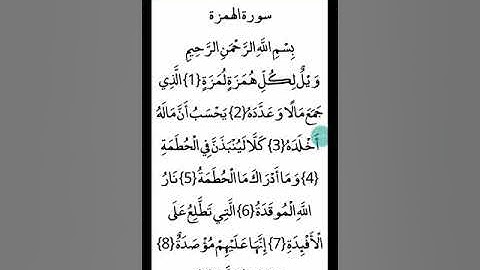 سورة الهمزة
بِسْمِ اللَّهِ الرَّحْمَنِ الرَّحِيمِ
وَيْلٌ لِكُلِّ هُمَزَةٍ لُمَزَةٍ {1} الَّذِي
جَمَعَ مَالًا وَعَدَّدَهُ {2} يَحْسَبُ أَنَّ مَالَهُ
أَخْلَدَهُ {3} كَلَّا لَيُنْبَذَنَّ فِي الْحُطَمَةِ
{4} وَمَا أَدْرَاكَ مَا الْحُطَمَةُ {5} نَارُ
اللَّهِ الْمُوقَدَةُ {6} الَّتِي تَطَّلِعُ عَلَى
الْأَفْئِدَةِ {7} إِنَّهَا عَلَيْهِمْ مُؤْصَدَةٌ {8}